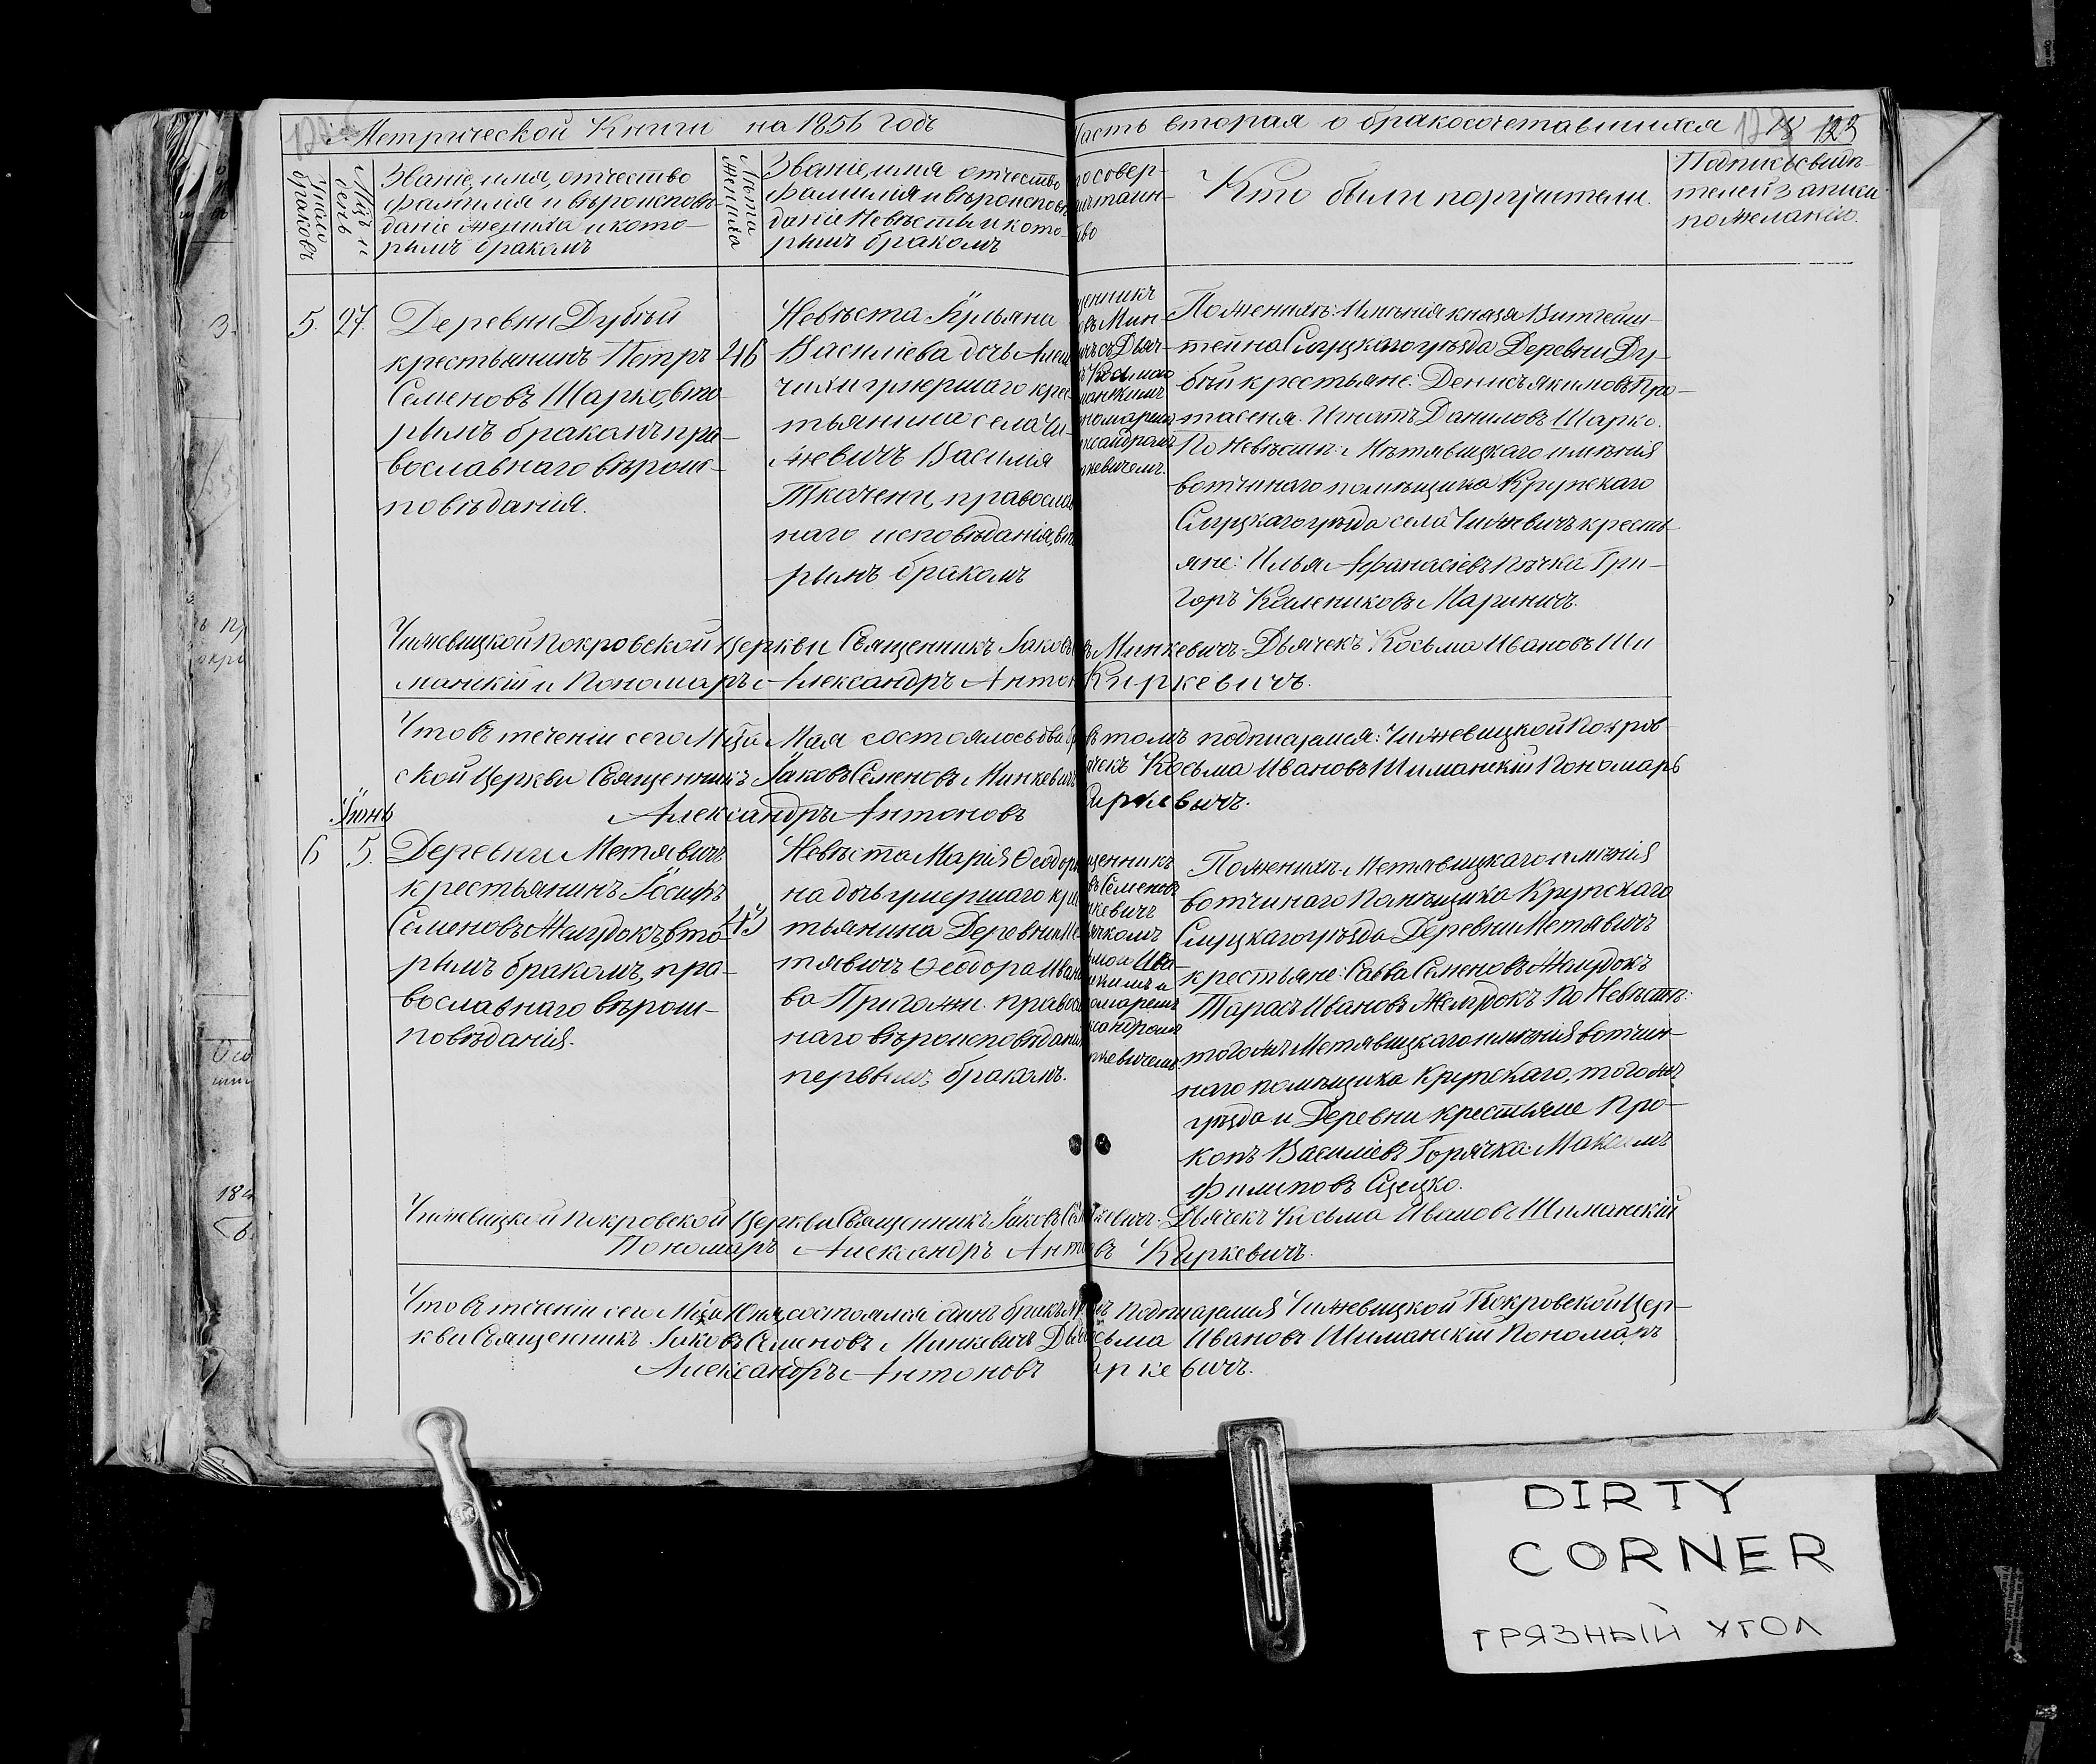 Метрической Книги на 1856 годъ
Часть вторая о бракосочетавшихся
123
Число браковъ
Мцъ и день
Званіе, имя, отчество
фамилія и вѣроисповѣ-
даніе жениха и кото-
рымъ бракомъ
Лѣта жениха
Званіе, имя отчество
фамилія и вѣроисповѣ
даніе Невѣсты и кото-
рымъ бракомъ
Кто были поручители.
Подпись свидѣ-
телей записи
по желанію.
5. 27
Деревни Дубѣи
крестьянинъ Петръ
Семеновъ Шарко, вто-
рымъ бракомъ пра-
вославнаго вѣроис-
повѣданія.
46
Невѣста Ульяна
Василіева дочь
умершаго крес-
тьянина села Чи-
жевичъ Василія
Ткачени, православ
наго исповѣданія, вто
рымъ бракомъ
щенникъ
Мин-
съ Дьяч-
Космою
манскимъ
номаремъ
ксандромъ
ркевичемъ.
По женихѣ: Имѣнія князя Витгейн-
тейна Слуцкаго уѣзда Деревни Ду-
бѣи крестьяне: Денисъ Якимовъ Про-
тасеня. Игнатъ Даниловъ Шарко.
По Невѣстѣ: Мѣтявицкаго имѣнія
вотчинаго помѣщика Крупскаго
Слуцкаго уѣзда села Чижевичъ кресть-
яне: Илья Афанасіевъ Пѣчка Гри-
горъ Калениковъ Маринич.
Чижевицкой Покровской Церкви Священникъ Іаковъ Минкевичъ Дьячекъ Косьма Ивановъ Ши
манскій и Пономаръ Александръ Антон Киркевичъ.
Что въ теченіи сего Мца Мая состоялось два въ томъ подписуемся: Чижевицкой Покров-
ской Церкви Священникъ Іаковъ Семеновъ Минкевичъ ячекъ Косьма Ивановъ Шиманскій Пономарь
Александръ Антоновъ Киркевичъ.
Іюнь
6 5.
Деревни Метявичъ
крестьянинъ Іосифъ
Семеновъ Желудокъ вто-
рымъ бракомъ, пра-
вославнаго вѣроис-
повѣданія.
43
Невѣста Марія Ѳеодоро
на дочь умершаго крес
тьянина Деревни Ме
тявичъ Ѳеодора Ивано
ва Пригожи. правосл
наго вѣроисповѣданія
первымъ бракомъ.
щенникъ
въ Семенов
нкевичъ
ячкомъ
мою Ива-
нскимъ и
омаремъ
ксандромъ
ркевичемъ.
По женихѣ. Метявицкаго имѣнія
вотчинаго Помѣщика Крупскаго
Слуцкаго уѣзда Деревни Метявичъ
крестьяне: Савва Семеновъ Желудокъ
Тарасъ Ивановъ Желудокъ По Невѣстѣ:
того жъ Метявицкаго имѣнія вотчин-
наго помѣщика Крупскаго, того жъ
уѣзда и Деревни крестьяне Про-
копъ Василіевъ Горячка: Максимъ
Филиповъ Сцецко.
Чижевицкой Покровской Церкви Священникъ Іаковъ Сем кевичъ: Дьячекъ Косьма Ивановъ Шиманскій
Пономаръ Александръ Антоновъ Киркевичъ.
Что въ теченіи сего Мца Юня, состоялся одинъ бракъ подписуемся Чижевицкой Покровской Цер-
кви Священникъ Іаковъ Семеновъ Минкевичъ Дьячекъ Косьма Ивановъ Шиманскій Пономаръ
Александръ Антоновъ Киркевичъ.
DIRTY
CORNER
ГРЯЗНЫЙ УГОЛ